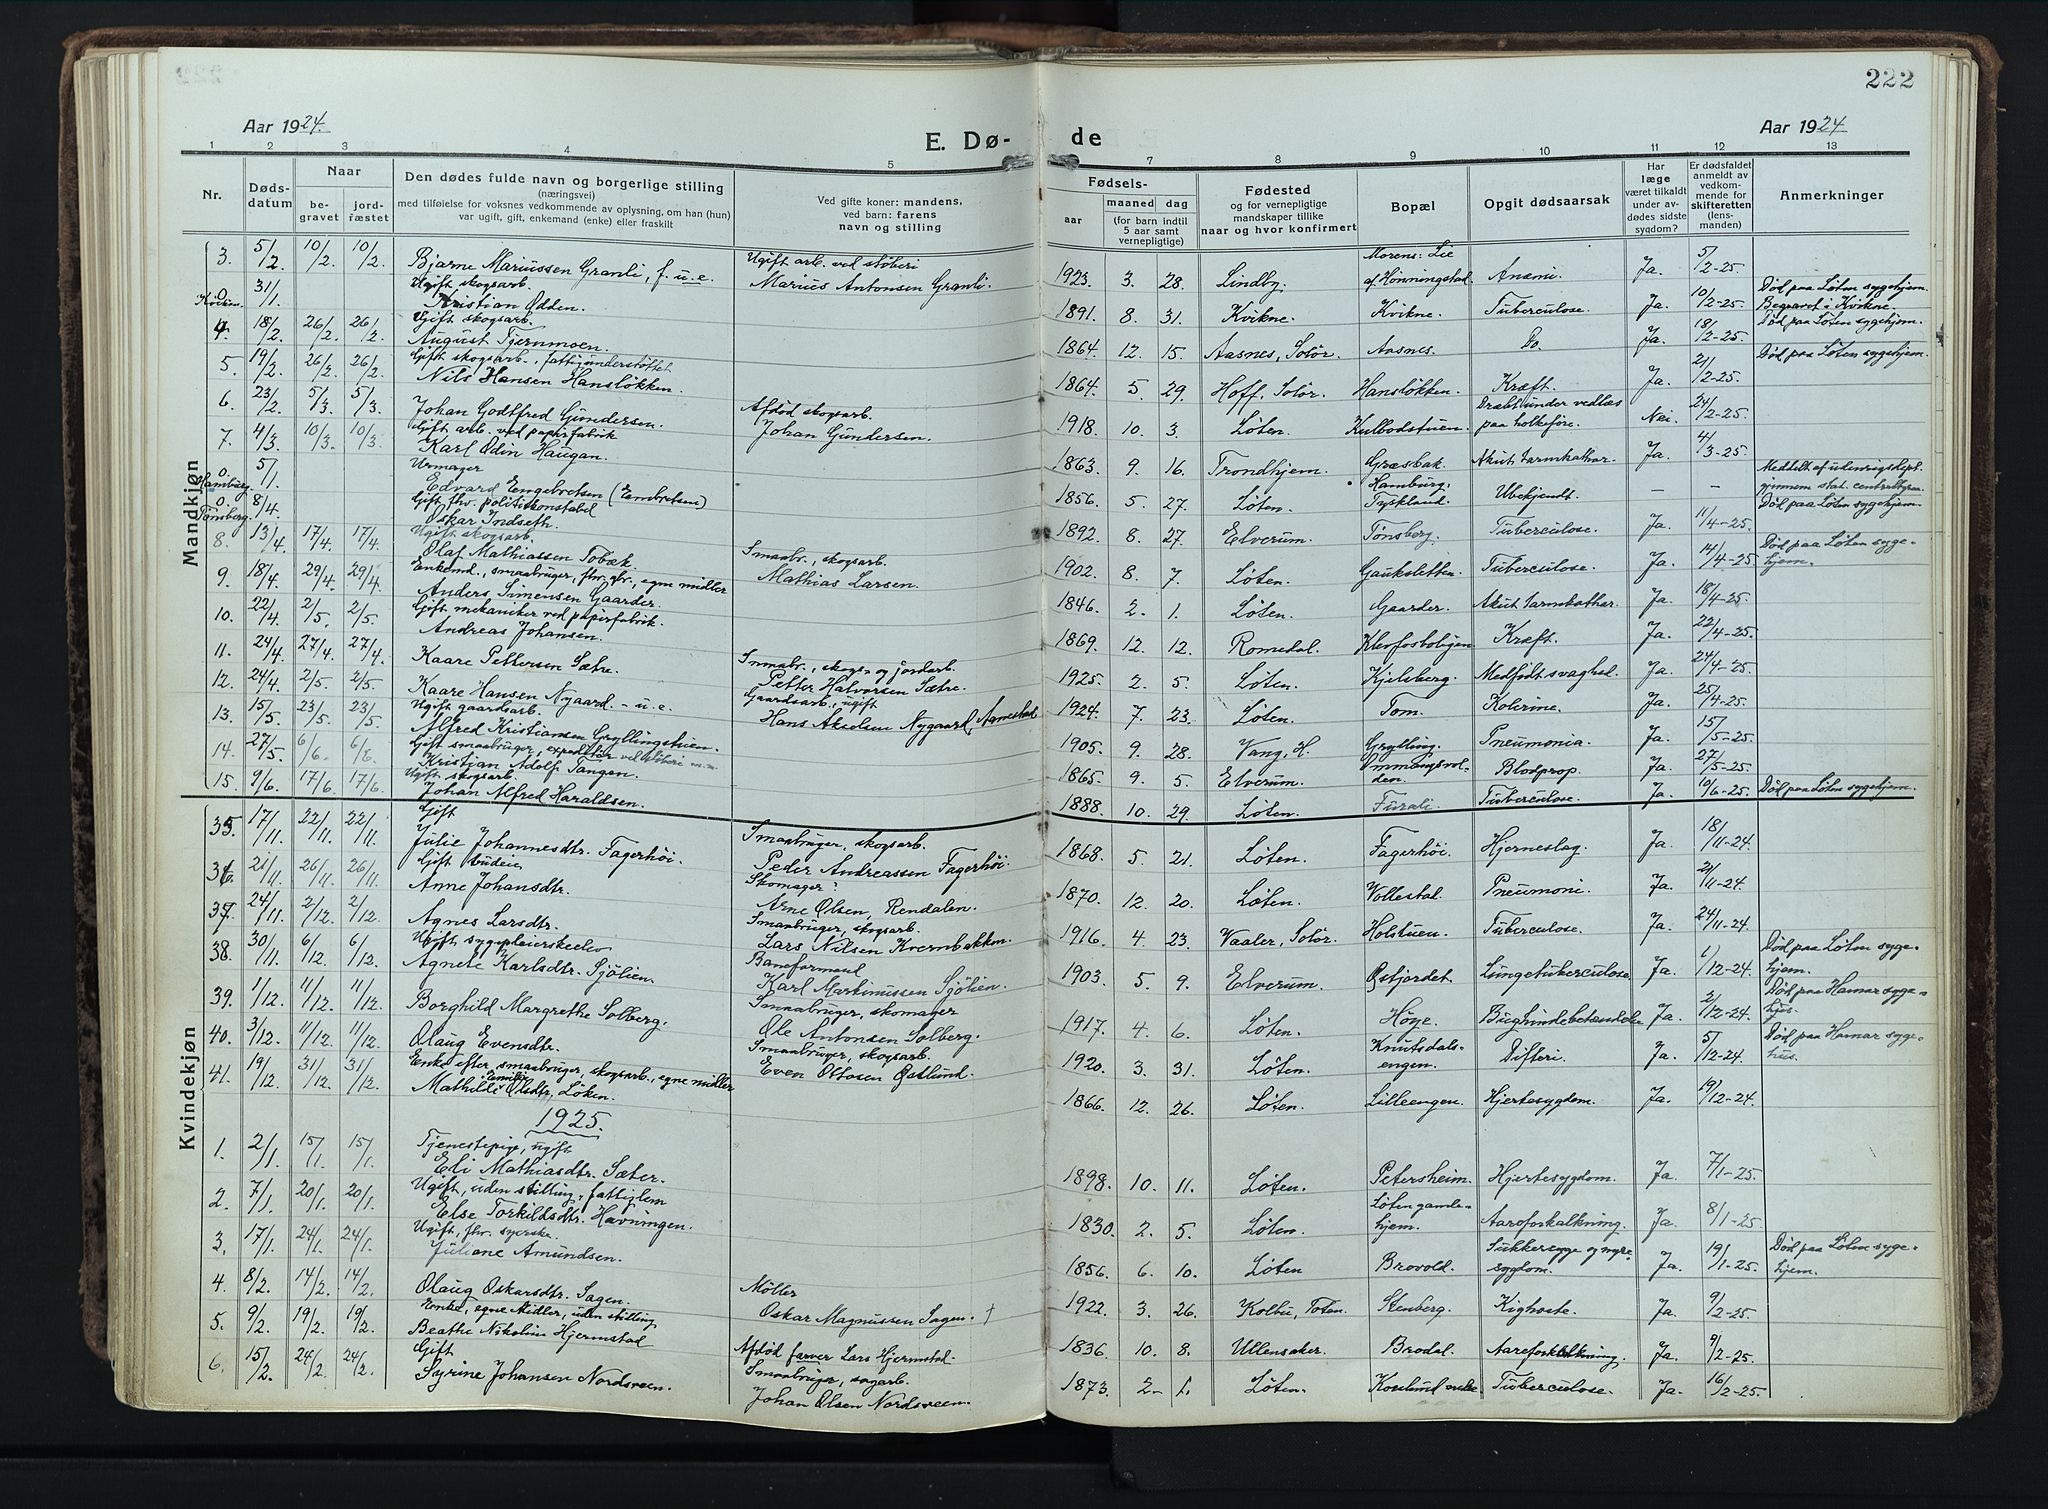 222
Aar 1924.
E. Dø- de
Aar 1924
1 2 3 4 5 7 8 9 10 11 12 13
Nr.
Døds-datum
Naar
be-gravet
jord-fæstet
Den dødes fulde navn og borgerlige stilling
(næringsvei)
med tilføielse for voksnes vedkommende av oplysning, om han (hun)
var ugift, gift, enkemand (enke) eller fraskilt
Ved gifte koner: mandens,
ved barn: farens
navn og stilling
Fødsels-
aar
maaned dag
(for barn indtil
5 aar samt
vernepligtige)
Fødested
og for vernepligtige
mandskaper tillike
naar og hvor konfirmert
Bopæl
Opgit dødsaarsak
Har
læge
været tilkaldt
under av-
dødes sidste
sygdom?
Er dødsfaldet
anmeldt av
vedkom-
mende for
skifteretten
(lens-
manden)
Anmerkninger
Mandkjøn
3. 5/2 10/2 10/2 Bjarne Mariussen Granli, f. u. e. Ugift arb. ved støberi Marius Antonsen Granli. 1923. 3. 28. Lindby. Morens: Lie af Hönningstad. Anæmi. Ja. 5/2-25.
0. Kvikne 31/1 Ugift skogsarb. Kristian Odden. 1891. 8. 31. Kvikne. Kvikne. Tuberculose. Ja. 10/2-25. Död paa Løten sygehjem. Begravet i Kvikne.
4. 18/2 26/2 26/2 Gift skogsarb. August Tjernmoen. 1864. 12. 15. Aasnes, Solör. Aasnes. Do. Ja. 18/2-25. Död paa Løten sygehjem.
5. 19/2 26/2 26/2 Gift skogsarb., fattigunderstöttet Nils Hansen Hanslökken. 1864. 5. 29. Hoff, Solör. Hanslökken. Kræft. Ja. 21/2-25. Död paa Løten sygehjem.
6. 23/2 5/3 5/3 Johan Godtfred Gundersen. Afdöd skogsarb. Johan Gundersen. 1918. 10. 3. Løten. Kulbodstuen. Dræbt under vedlæs paa holkeföre. Nei. 24/2-25.
7. 4/3 10/3 10/3 Gift arb. ved papirfabrik Karl Odin Haugan. 1863. 9. 16. Trondhjem. Græsbak. Akut tarmkathar. Ja. 4/3-25
0. Hamburg 5/1 Urmager Edvard Engebretsen (Embretsen) 1856. 5. 27. Løten. Hamburg, Tyskland. Ubekjendt. - - Meddelt af udenrigsdept. gjennem stat. centralbyraa.
0. Tönsberg. 8/4. Gift fhv. politikonstabel Oskar Indseth. 1892. 8. 27. Elverum. Tönsberg. Tuberculose. Ja. 11/4-25. Död paa Løten sygehjem.
8. 13/4. 17/4. 17/4. Ugift skogsarb. Olaf Mathiassen Tobæk. Smaabr., skogsarb. Mathias Larsen. 1902. 8. 7. Løten. Gaukstetten. Tuberculose. Ja. 14/4-25 Död paa Løten syge-hjem.
9. 18/4. 29/4. 29/4. Enkemd., smaabruger, fhv. gbr., egne midler Anders Simensen Gaarder. 1846. 2. 1. Løten. Gaarder. Akut tarmkathar. Ja. 18/4-25
10. 22/4 2/5. 2/5. Gift mekaniker ved papirfabrik. Andreas Johansen. 1869. 12. 12. Romedal. Klevfosboligen Kræft. Ja. 22/4-25.
11. 24/4. 27/4. 27/4. Kaare Pettersen Sætre. Smaabr., skogs- og jordarb. Petter Halvorsen Sætre. 1925. 2. 5. Løten. Kjelsberg. Medfödt svaghed. Ja. 24/4-25.
12. 24/4. 2/5. 2/5. Kaare Hansen Nygaard - u. e. Gaardsarb., ugift Hans Akselsen Nygaard, Agnestad 1924. 7. 23. Løten. Tom. Kolerine. Ja. 25/4-25.
13. 15/5. 23/5. 23/5. Ugift gaardsarb. Alfred Kristiansen Gryllingstuen. 1905. 9. 28. Vang, H. Grylling. Pneumonia. Ja. 15/5-25.
14. 27/5. 6/6. 6/6. Gift smaabruger, expeditör ved støberi m. m. Kristian Adolf Tangen. 1865. 9. 5. Elverum. Ommangsvol-den. Blodprop. Ja. 27/5-25.
15. 9/6. 17/6 17/6. Ugift skogsarb. Johan Alfred Haraldsen. 1888. 10. 29. Løten. Furali. Tuberculose. Ja. 10/6-25. Död paa Løten sygehjem.
Kvindekjøn
35. 17/11. 22/11. 22/11. Gift Julie Johannesdtr. Fagerhöi. Smaabruger, skogsarb. Peder Andreassen Fagerhöi. 1868. 5. 21. Løten. Fagerhöi. Hjerneslag. Ja. 18/11-24.
36. 21/11. 26/11. 26/11. Gift budeie Anne Johansdtr. Skomager Arne Olsen, Rendalen. 1870. 12. 20. Løten. Vollestad. Pneumoni. Ja. 21/11-24.
37. 24/11. 2/12. 2/12. Agnes Larsdtr. Smaabruger, skogsarb. Lars Nilsen Kvernbakken. 1916. 4. 23. Vaaler, Solör. Holstuen. Tuberculose. Ja. 24/11-24.
38. 30/11. 6/12. 6/12. Ugift sygepleierskeelev Agnete Karlsdtr. Sjölien. Baneformand Karl Martinussen Sjölien. 1903. 5. 9. Elverum. Østfjordet. Lungetuberculose. Ja. 1/12-24. Död paa Løten syge-hjem.
39. 1/12. 11/12. 11/12. Borghild Margrethe Solberg. Smaabruger, skomager Ole Antonsen Solberg. 1917. 4. 6. Løten. Höye. Bughindebetændelse Ja. 2/12-24. Död paa Hamar syge-hus.
40. 3/12. 11/12. 11/12. Olaug Evensdtr. Smaabruger, skogsarb. Even Ottosen Østlund. 1920. 3. 31. Løten. Knutsdals-engen. Difteri. Ja. 5/12-24. Död paa Hamar syge-hus.
41. 19/12. 31/12. 31/12. Enke efter smaabruger, skogsarb., egne midler Mathilde Emilie Olsdtr. Löken. 1866. 12. 26. Løten. Lilleengen. Hjertesygdom. Ja. 19/12-24.
1925.
1. 2/1. 15/1. 15/1. Tjenestepige, ugift Eli Mathiasdtr. Sæter. 1898. 10. 11. Løten. Petersheim. Hjertesygdom. Ja. 7/1-25.
2. 7/1. 20/1. 20/1. Ugift, uden stilling, fattiglem Else Torkildsdtr. Hævningen. 1830. 2. 5. Løten. Løten gamle-hjem. Aareforkalkning. Ja. 8/1-25.
3. 17/1. 24/1. 24/1. Ugift, fhv. syerske. Juliane Amundsen. 1856. 6. 10. Løten Brovold. Sukkersyge og nyre-sygdom. Ja. 19/1-25. Död paa Løten syge-hjem.
4. 8/2. 14/2. 14/2. Olaug Oskarsdtr. Sagen. Möller Oskar Magnussen Sagen. † 1922. 3. 26. Kolbu, Toten. Stenberg. Kighoste. Ja. 9/2-25.
5. 9/2. 19/2. 19/2. Enke, egne Midler, uden stilling Beathe Nikoline Hjermstad Afdöd farver Lars Hjermstad. 1836. 10. 8. Ullensaker. Brodal. Aareforkalkning. Ja. 9/2-25.
6. 15/2. 24/2. 24/2. Gift Syrine Johansen Nordsveen. Smaabruger, sagarb. Johan Olsen Nordsveen. 1873. 2. 1. Løten. Tuberculose. Ja. 16/2-25.